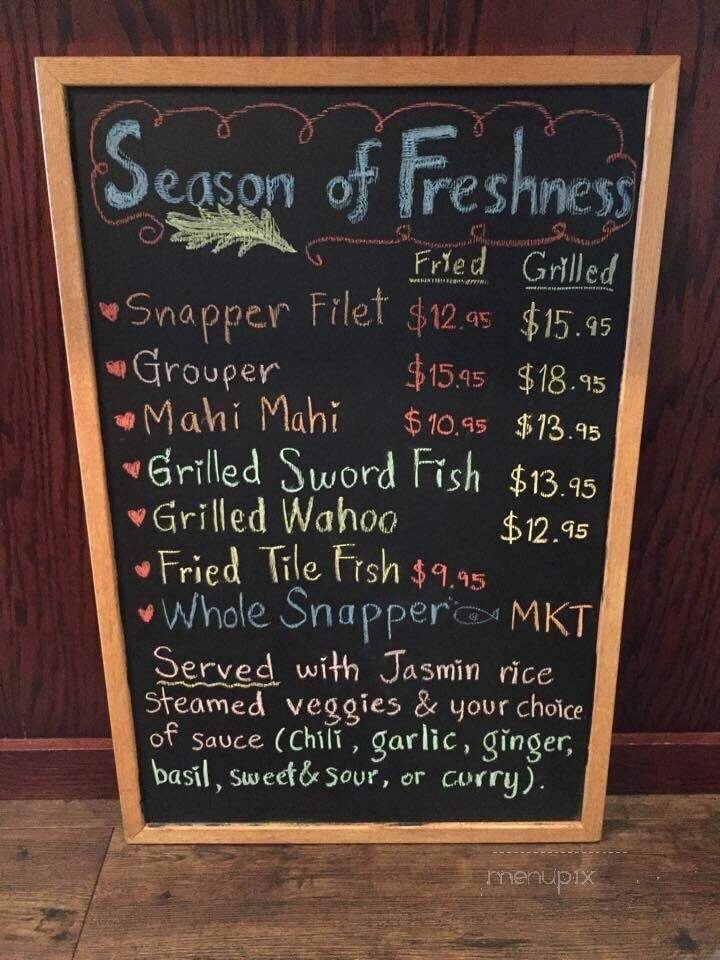 Season of Freshness
Fried Grilled
Snapper Filet $12.95 $15.95
Grouper $15.95 $18.95
Mahi Mahi $10.95 $13.95
Grilled Sword Fish $13.95
Grilled Wahoo $12.95
Fried Tile Fish $9.95
Whole Snapper MKT
Served with Jasmin rice
steamed veggies & your choice
of sauce (chili, garlic, ginger,
basil, sweet & sour, or curry).
menupix